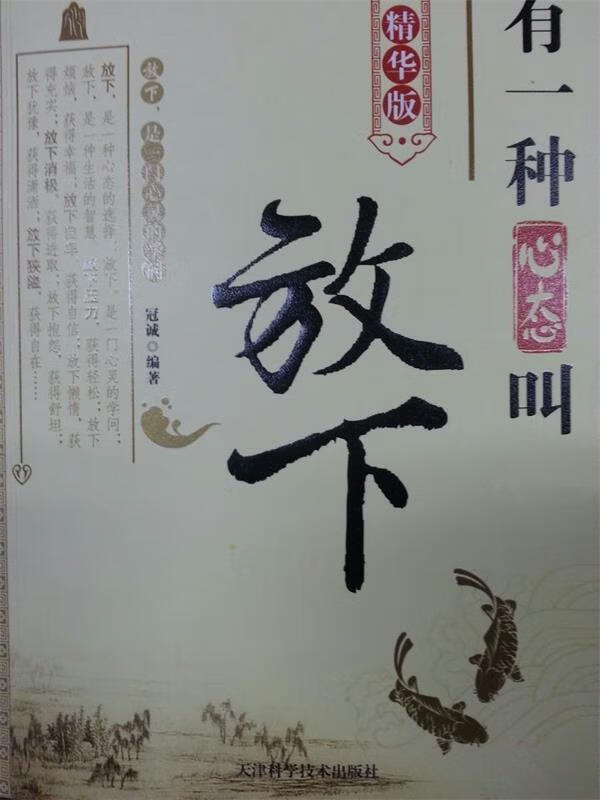 有一种心态叫
放下
精华版
放下，是一门心灵的学问
冠诚◎编著
放下，是一种心态的选择；放下，是一门心灵的学问；
放下，是一种生活的智慧。放下压力，获得轻松；放下
烦恼，获得幸福；放下自卑，获得自信；放下懒惰，获
得充实；放下消极，获得进取；放下抱怨，获得舒坦；
放下犹豫，获得潇洒；放下狭隘，获得自在……
天津科学技术出版社